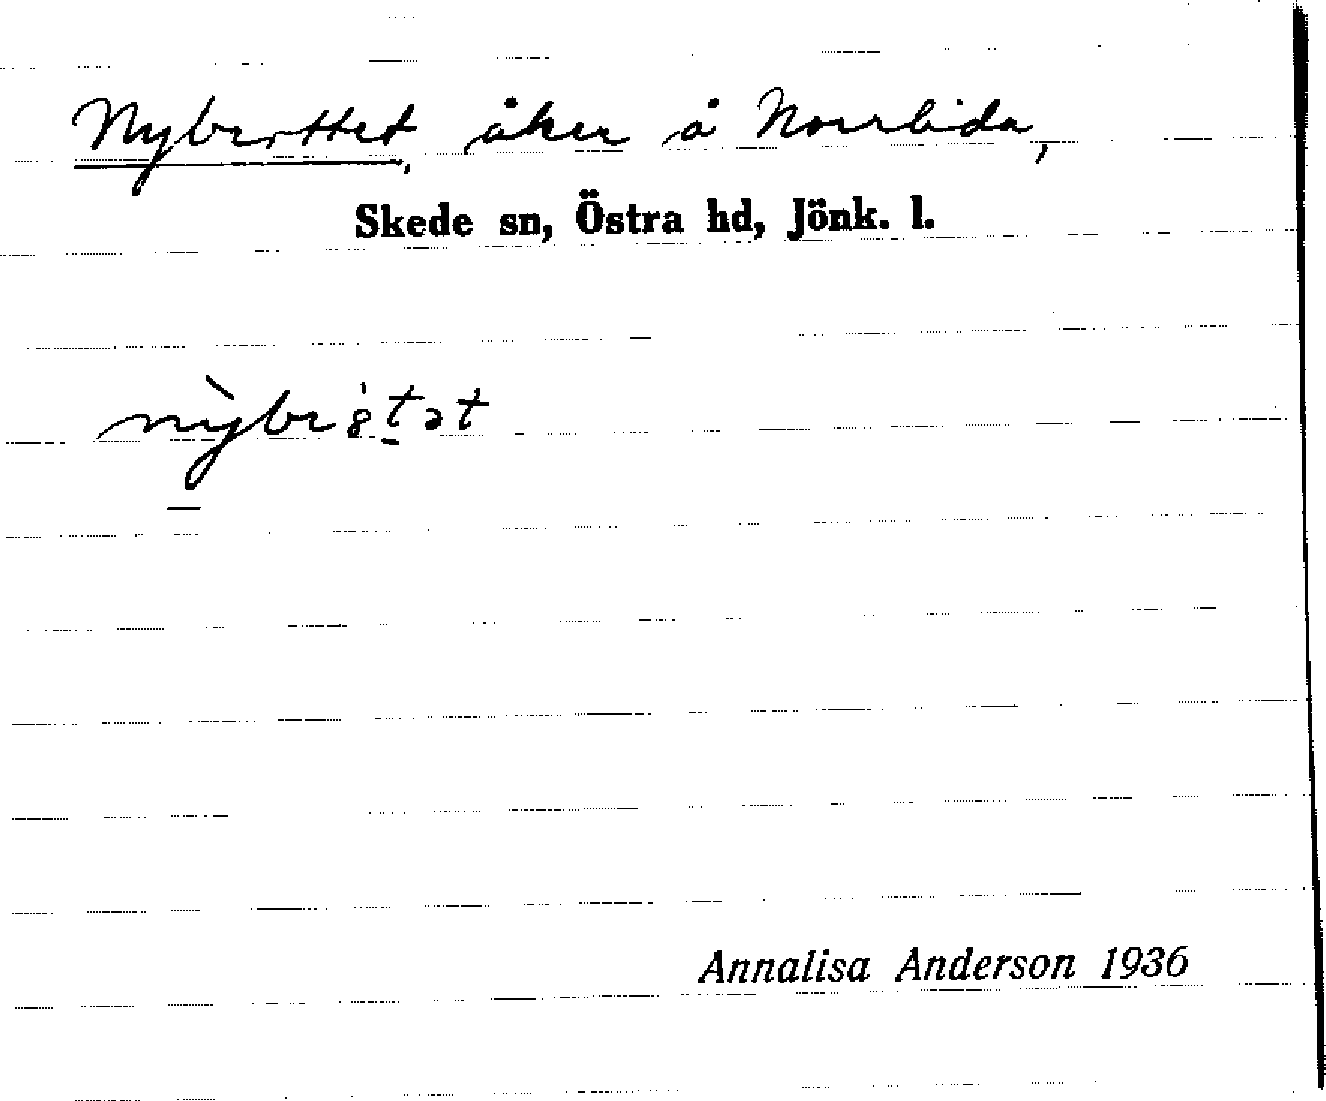 Nybrottet, åker å Norrlida,
Skede sn, Östra hd, Jönk. l.
nỳbr8tət
Annalisa Anderson 1936